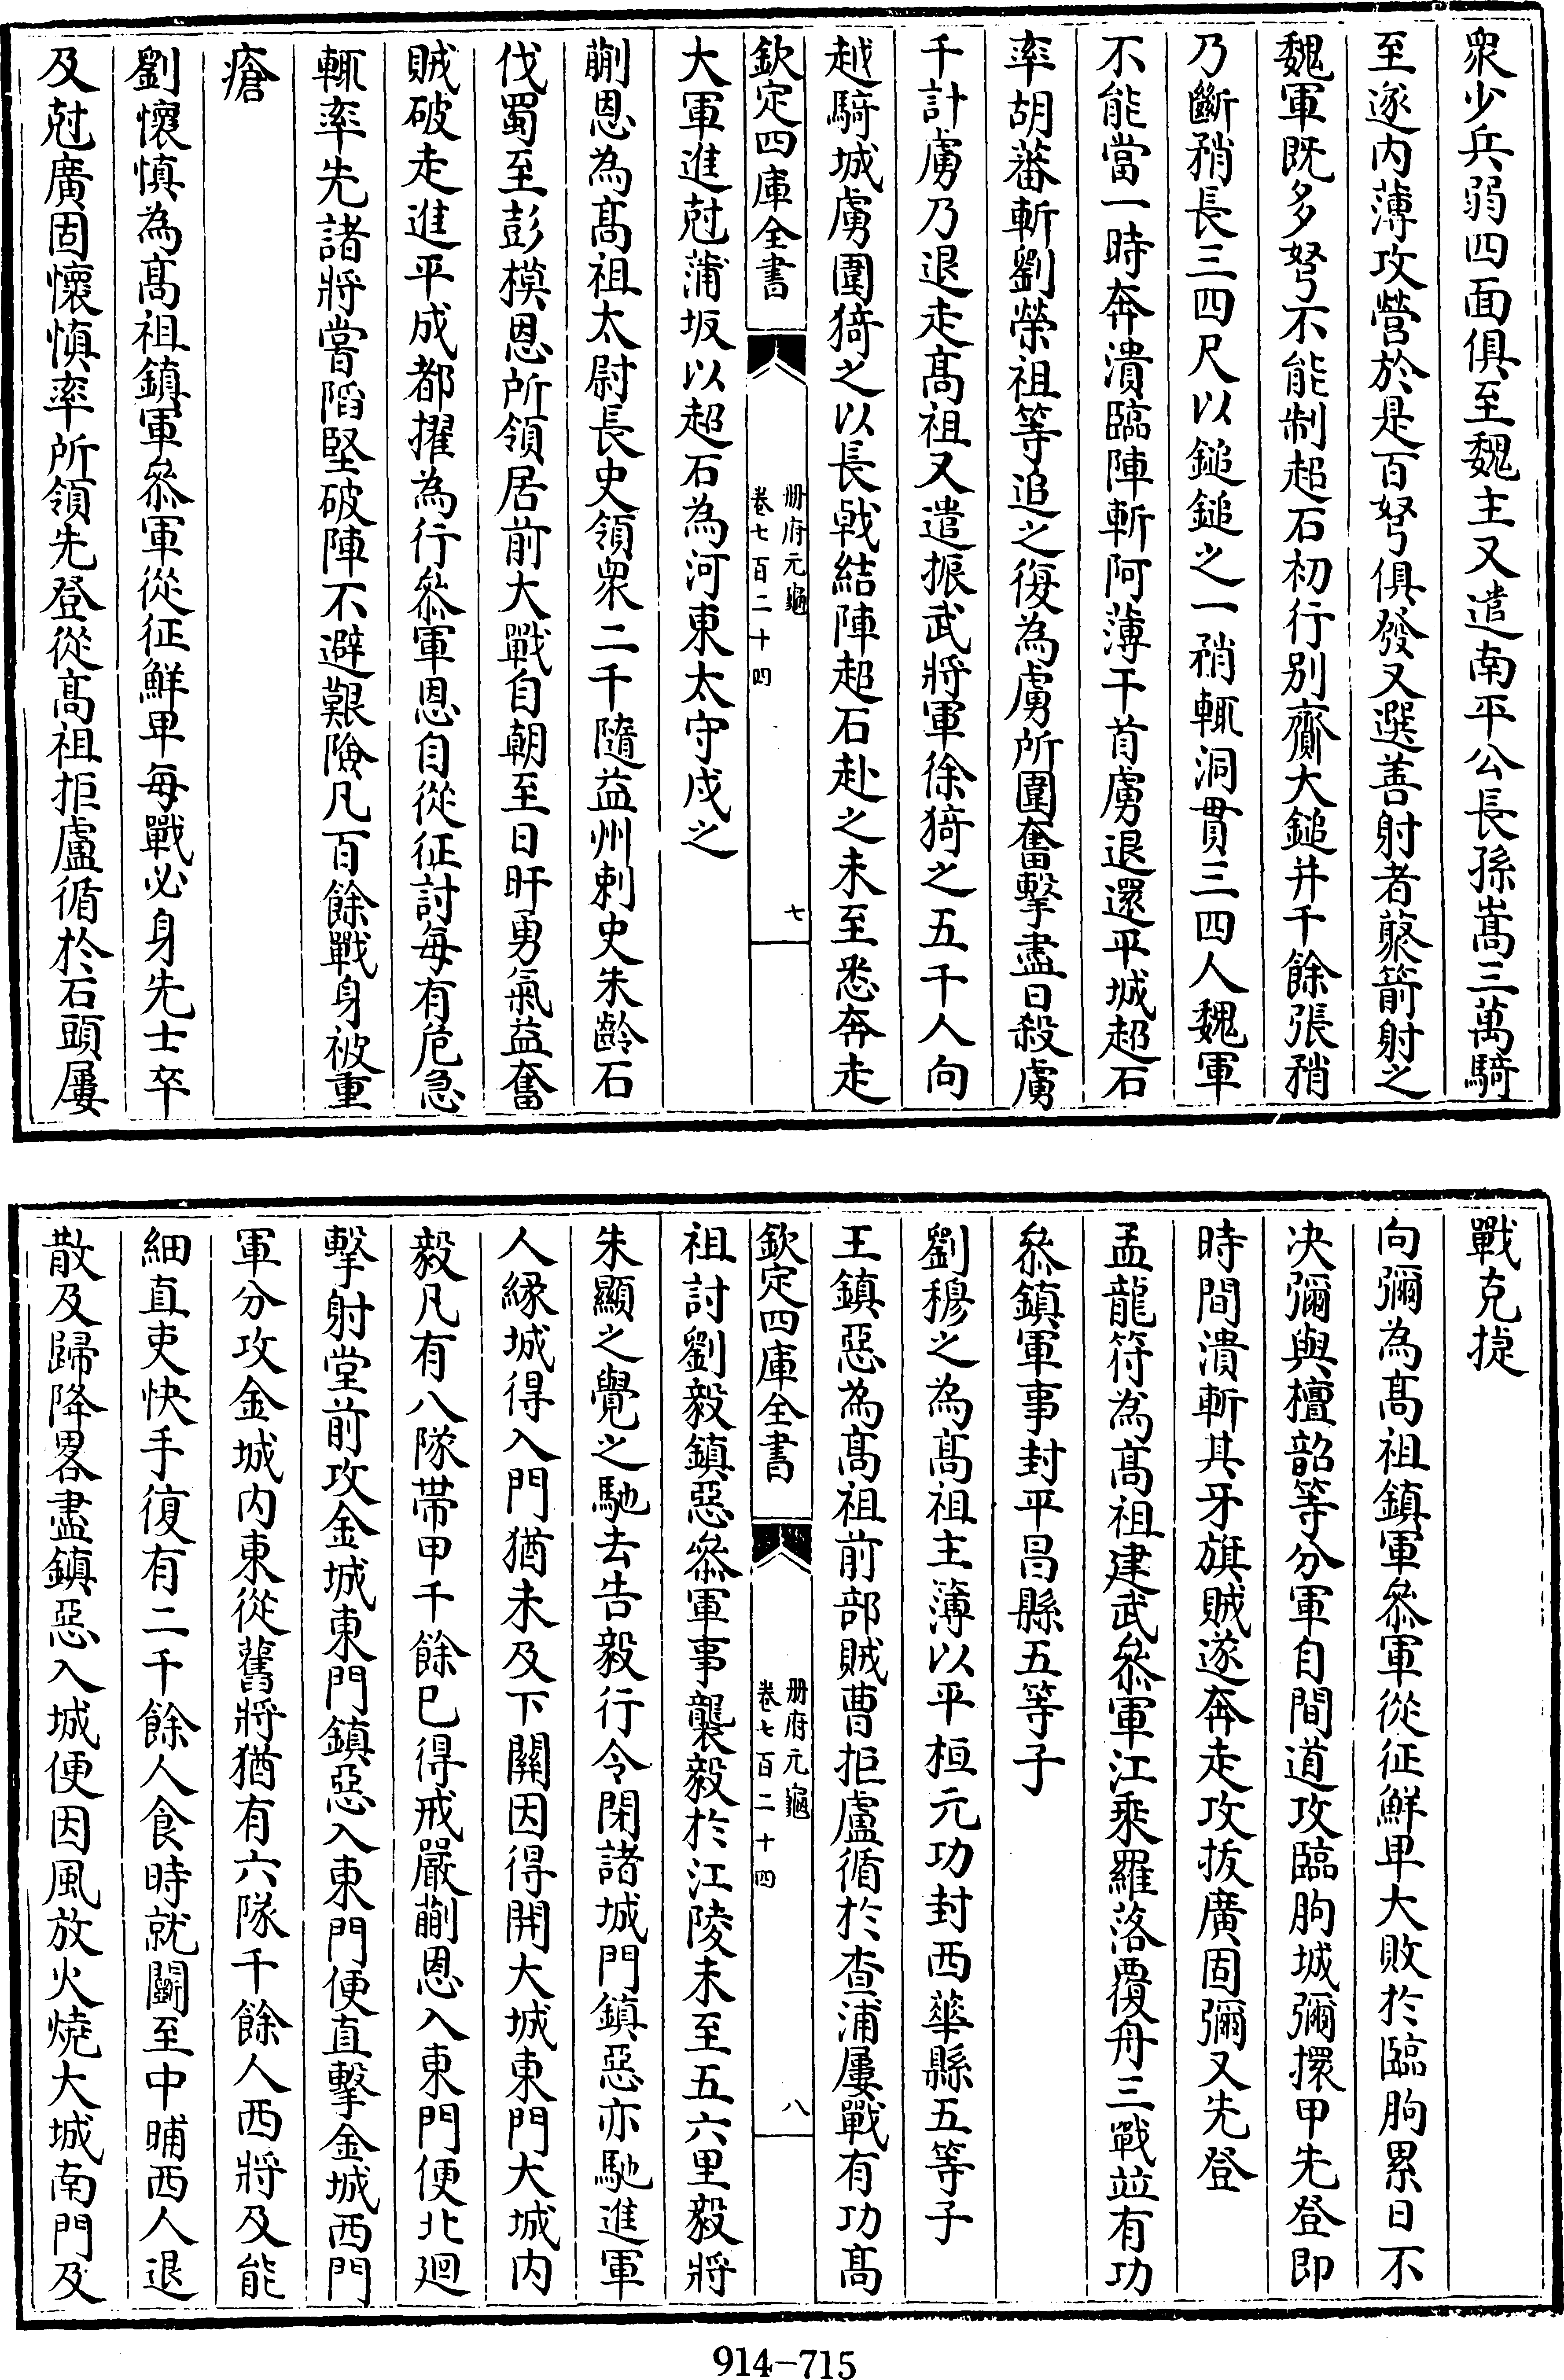 衆少兵弱四面俱至魏主又遣南平公長孫嵩三萬騎
至遂内薄攻營於是百弩俱發又選善射者藂箭射之
魏軍既多弩不能制超石初行别齎大鎚并千餘張矟
乃斷矟長三四尺以鎚鎚之一矟輒洞貫三四人魏軍
不能當一時奔潰臨陣斬阿薄干首虜退還平城超石
率胡蕃斬劉榮祖等追之復為虜所圍奮擊盡日殺虜
千計虜乃退走髙祖又遣振武將軍徐猗之五千人向
越騎城虜圍猗之以長戟結陣超石赴之未至悉奔走
欽定四庫全書
册府元龜
卷七百二十四
七
大軍進尅蒲坂以超石為河東太守戍之
蒯恩為髙祖太尉長史領衆二千隨益州刺史朱齡石
伐蜀至彭模恩所領居前大戰自朝至日旰勇氣益奮
賊破走進平成都擢為行叅軍恩自從征討每有危急
輒率先諸將嘗䧟堅破陣不避艱險凡百餘戰身被重
瘡
劉懷慎為髙祖鎮軍叅軍從征鮮卑每戰必身先士卒
及尅廣固懷慎率所領先登從髙祖拒盧循於石頭屢
戰克捷
向彌為髙祖鎮軍叅軍從征鮮卑大敗於臨朐累日不
决彌與檀韶等分軍自間道攻臨朐城彌擐甲先登即
時間潰斬其牙旗賊遂奔走攻拔廣固彌又先登
孟龍符為髙祖建武叅軍江乘羅落覆舟三戰竝有功
叅鎮軍事封平昌縣五等子
劉穆之為髙祖主薄以平桓元功封西華縣五等子
王鎮惡為髙祖前部賊曹拒盧循於查浦屢戰有功髙
欽定四庫全書
册府元龜
卷七百二十四
八
祖討劉毅鎮惡叅軍事襲毅於江陵未至五六里毅將
朱顯之覺之馳去告毅行令閉諸城門鎮惡亦馳進軍
人縁城得入門猶未及下關因得開大城東門大城内
毅凡有八隊帶甲千餘已得戒嚴蒯恩入東門便北廻
擊射堂前攻金城東門鎮惡入東門便直擊金城西門
軍分攻金城内東從舊將猶有六隊千餘人西將及能
細直吏快手復有二千餘人食時就鬭至中晡西人退
散及歸降畧盡鎮惡入城便因風放火燒大城南門及
914-715